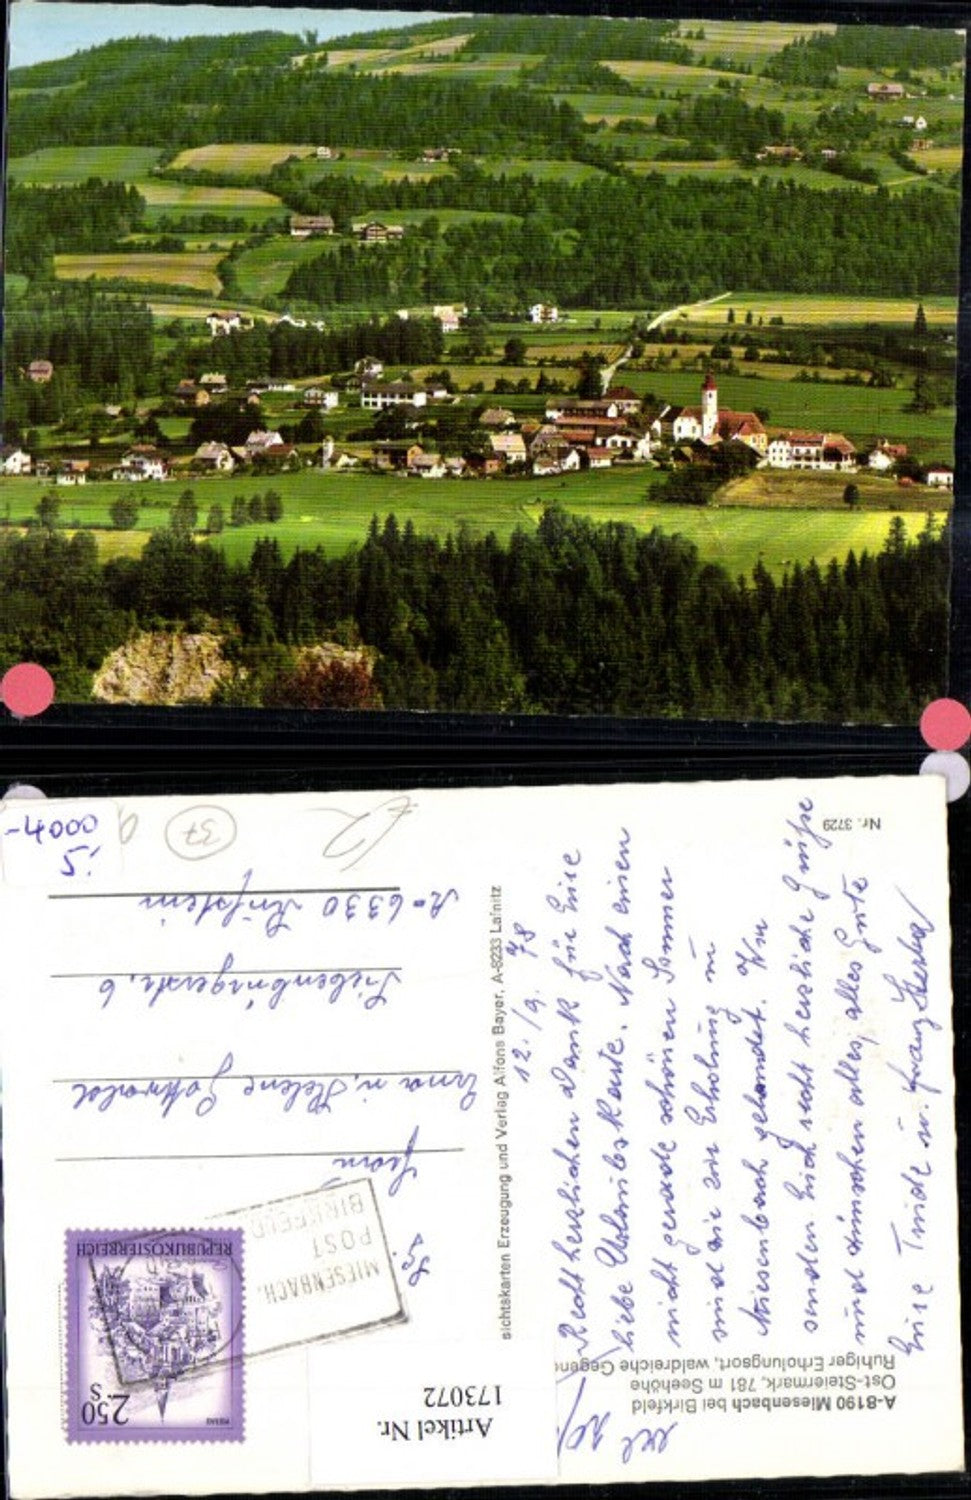 A-8190 Miesenbach bei Birkfeld
Ost-Steiermark, 781 m Seehöhe
Ruhiger Erholungsort, waldreiche Gegend
12./9. 78
Recht herzlichen Dank für Eure
liebe Urlaubskarte. Nach einem
nicht gerade schönen Sommer
sind wir zur Erholung in
Miesenbach gelandet. Wir
senden Euch recht herzliche Grüße
und wünschen alles, alles Gute
Eure Trude u. Franz
Nr. 3729
sichtskarten Erzeugung und Verlag Alfons Bayer, A-8233 Lafnitz
REPUBLIK ÖSTERREICH
2.50
S
MIESENBACH
POST
BIRKFELD
Fam
Erna u. Helene Gottwald
Siebenbürgerstr. 6
A-6330 Kufstein
37
i5
4000,-
Artikel Nr.
173072